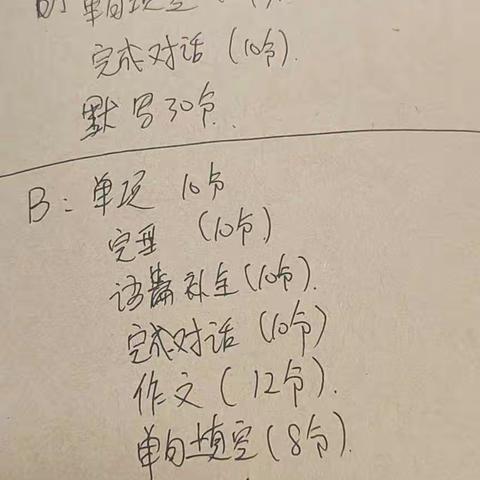 完成对话（10分）.
默写30分.
B：单项 10分
完型（10分）
语篇补全（10分）.
完成对话（10分）
作文（12分）.
单句填空（8分）.